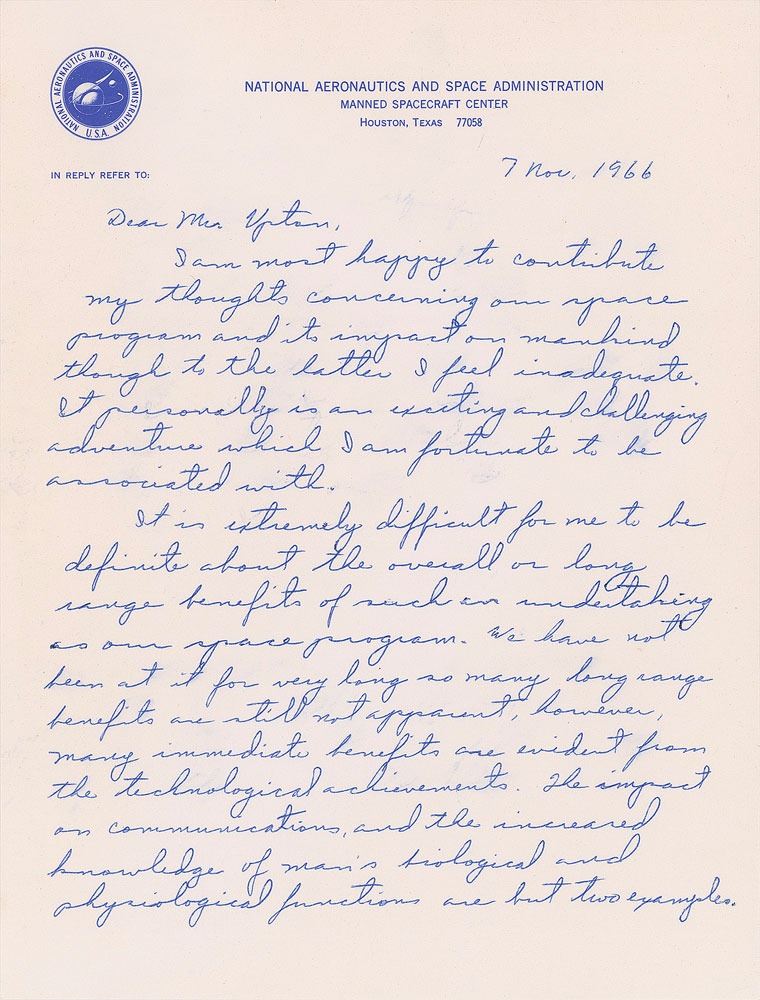 NATIONAL AERONAUTICS AND SPACE ADMINISTRATION
U.S.A.
NATIONAL AERONAUTICS AND SPACE ADMINISTRATION
MANNED SPACECRAFT CENTER
HOUSTON, TEXAS 77058
IN REPLY REFER TO:
7 Nov. 1966
Dear Mr. Upton,
I am most happy to contribute
my thoughts concerning our space
program and its impact on mankind
though to the latter I feel inadequate.
It personally is an exciting and challenging
adventure which I am fortunate to be
associated with.
It is extremely difficult for me to be
definite about the overall or long
range benefits of such an undertaking
as our space program. We have not
been at it for very long so many long range
benefits are still not apparent, however,
many immediate benefits are evident from
the technological achievements. The impact
on communications, and the increased
knowledge of man's biological and
physiological functions are but two examples.